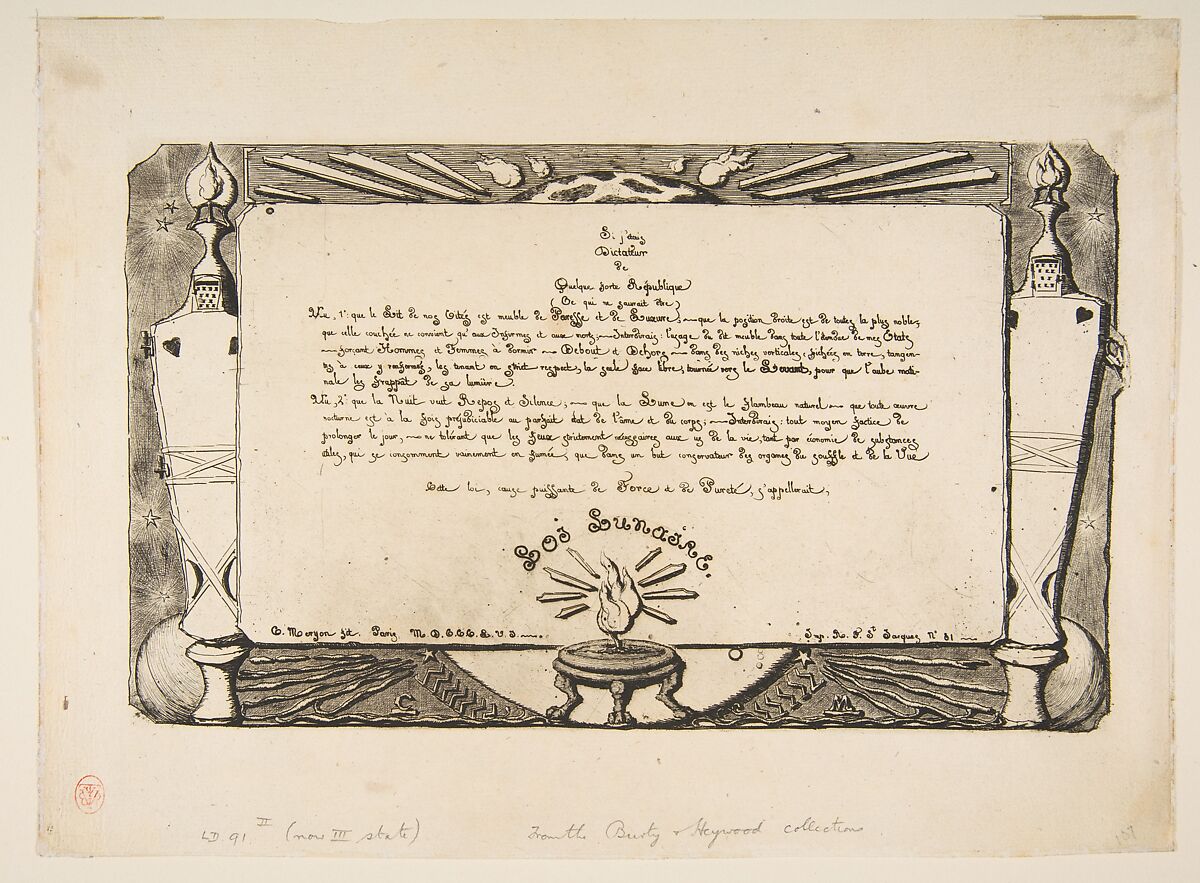 Si j'étais
Dictateur
de
Quelque sorte République
(Ce qui ne saurait être)
Vu, 1º: que le Lit de nos Cités est meuble de Paresse et de Luxure; que la position droite est de toutes la plus noble;
que celle couchée ne convient qu'aux Infirmes et aux morts; Interdirais: l'usage du dit meuble dans toute l'étendue de mes Etats
forçant Hommes et Femmes à dormir Debout et Dehors dans des niches verticales, fichées en terre, tangen-
à ceux y renfermés, les tenant en strict respect, la seule face libre, tournée vers le Levant, pour que l'aube mati-
nale les frappât de sa lumière.
Vu, 2º: que la Nuit veut Repos et Silence; que la Lune en est le flambeau naturel que toute œuvre
nocturne est à la fois préjudiciable au parfait état de l'âme et du corps; Interdirais: tout moyen factice de
prolonger le jour, ne tolérant que les feux strictement nécessaires aux us de la vie, tant par économie de substances
utiles, qui se consomment vainement en fumée, que dans un but conservateur des organes du souffle et de la Vue
Cette loi, cause puissante de Force et de Pureté, s'appellerait,
Loi Lunaire.
C. Meryon fit. Paris M.D.CCC.L.V.I.
Imp. R. F. St Jacques, Nº 81
C M
LD 91 II (now III state) From the Burty & Heywood collections